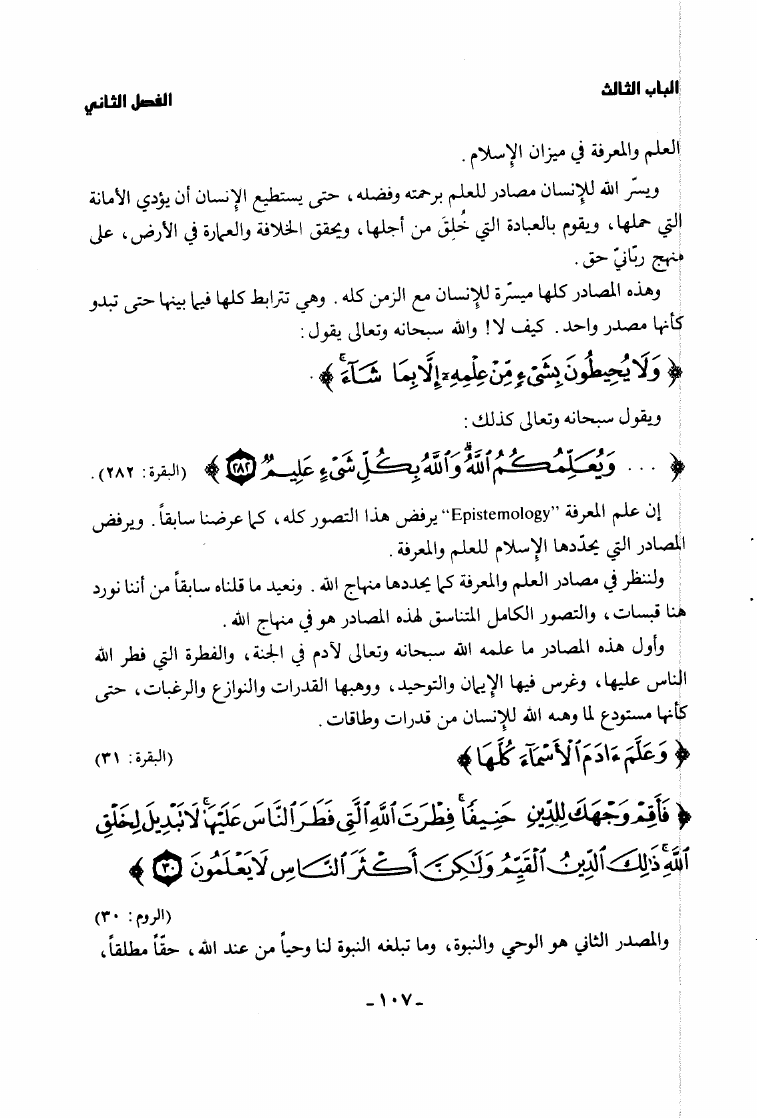 الباب الثالث
الفصل الثاني
العلم والمعرفة في ميزان الإسلام .
ويسّر الله للإنسان مصادر للعلم برحمته وفضله ، حتى يستطيع الإنسان أن يؤدي الأمانة
التي حملها ، ويقوم بالعبادة التي خُلِقَ من أجلها ، ويحقق الخلافة والعمارة في الأرض ، على
منهج ربّانيّ حق .
وهذه المصادر كلها ميسّرة للإنسان مع الزمن كله . وهي تترابط كلها فيما بينها حتى تبدو
كأنها مصدر واحد . كيف لا ! والله سبحانه وتعالى يقول :
﴿ وَلَا يُحِيطُونَ بِشَىْءٍ مِّنْ عِلْمِهِۦٓ إِلَّا بِمَا شَآءَ ۚ ﴾ .
ويقول سبحانه وتعالى كذلك :
﴿ ... وَيُعَلِّمُكُمُ ٱللَّهُ ۗ وَٱللَّهُ بِكُلِّ شَىْءٍ عَلِيمٌ ٢٨٢ ﴾ (البقرة: ٢٨٢) .
إن علم المعرفة "Epistemology" يرفض هذا التصور كله ، كما عرضنا سابقاً . ويرفض
المصادر التي يحدّدها الإسلام للعلم والمعرفة .
ولننظر في مصادر العلم والمعرفة كما يحددها منهاج الله . ونعيد ما قلناه سابقاً من أننا نورد
هنا قبسات ، والتصور الكامل المتناسق لهذه المصادر هو في منهاج الله .
وأول هذه المصادر ما علمه الله سبحانه وتعالى لآدم في الجنة ، والفطرة التي فطر الله
الناس عليها ، وغرس فيها الإيمان والتوحيد ، ووهبها القدرات والنوازع والرغبات ، حتى
كأنها مستودع لما وهبه الله للإنسان من قدرات وطاقات .
﴿ وَعَلَّمَ ءَادَمَ ٱلْأَسْمَآءَ كُلَّهَا ﴾ (البقرة: ٣١)
﴿ فَأَقِمْ وَجْهَكَ لِلدِّينِ حَنِيفًا ۚ فِطْرَتَ ٱللَّهِ ٱلَّتِى فَطَرَ ٱلنَّاسَ عَلَيْهَا ۚ لَا تَبْدِيلَ لِخَلْقِ
ٱللَّهِ ۚ ذَٰلِكَ ٱلدِّينُ ٱلْقَيِّمُ وَلَٰكِنَّ أَكْثَرَ ٱلنَّاسِ لَا يَعْلَمُونَ ٣٠ ﴾
(الروم: ٣٠)
والمصدر الثاني هو الوحي والنبوة ، وما تبلغه النبوة لنا وحياً من عند الله ، حقّاً مطلقاً ،
- ١٠٧ -